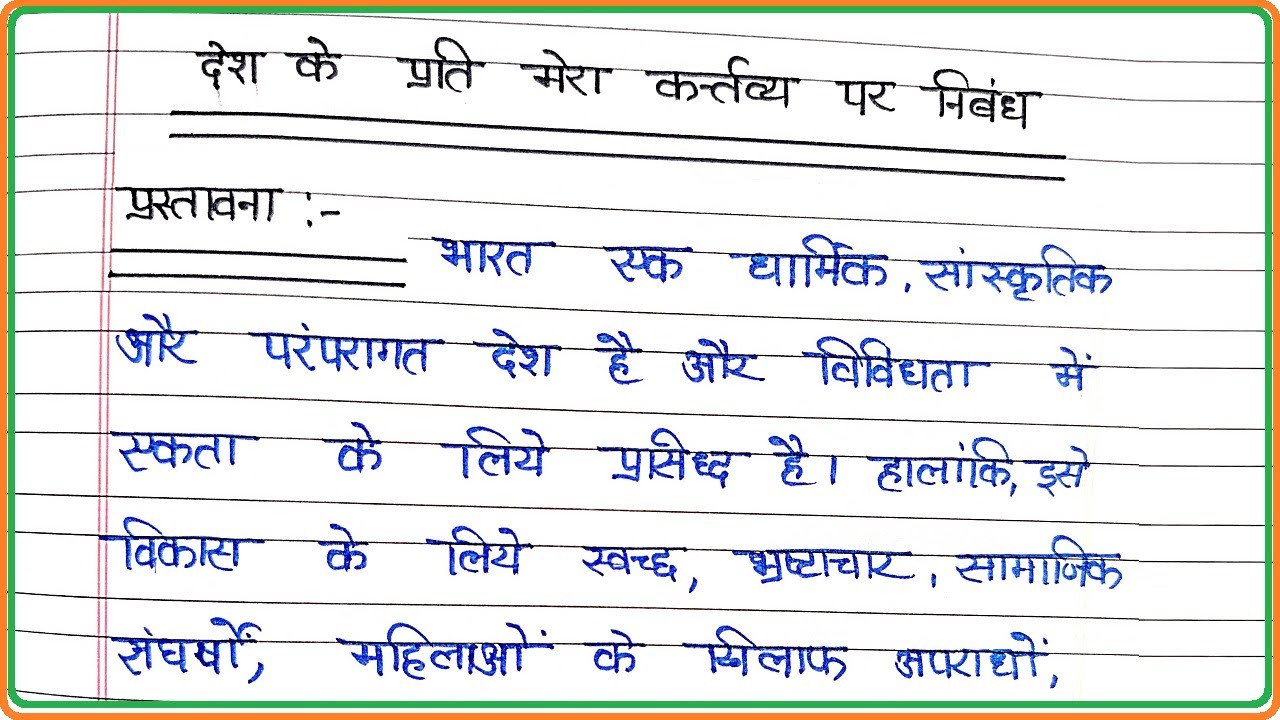 देश के प्रति मेरा कर्त्तव्य पर निबंध
प्रस्तावना :-
भारत एक धार्मिक, सांस्कृतिक
और परंपरागत देश है और विविधता में
एकता के लिये प्रसिध्द है। हालांकि, इसे
विकास के लिये स्वच्छ, भ्रष्टाचार, सामाजिक
संघर्षों, महिलाओं के खिलाफ अपराधों,